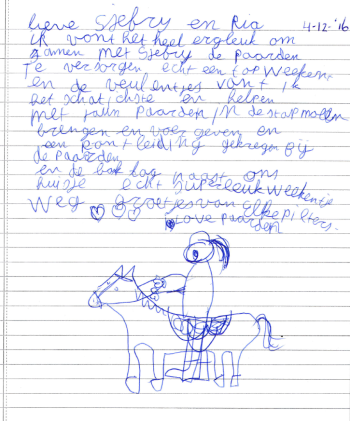 lieve Sjebry en Ria 4-12-'16
ik vont het heel erg leuk om
samen met Sjebry de paarden
Te versorgen echt een top weekent
en de veulentjes vant ik
het schatichste en helpen
met jaun paarden in de stapmolen
brengen en voer geven en
een rontleiding gekregen bij
de paarden
en de bak lag naast ons
huisje echt superleuk weekentje
weg groetjes van Elke Pilters.
love paarden